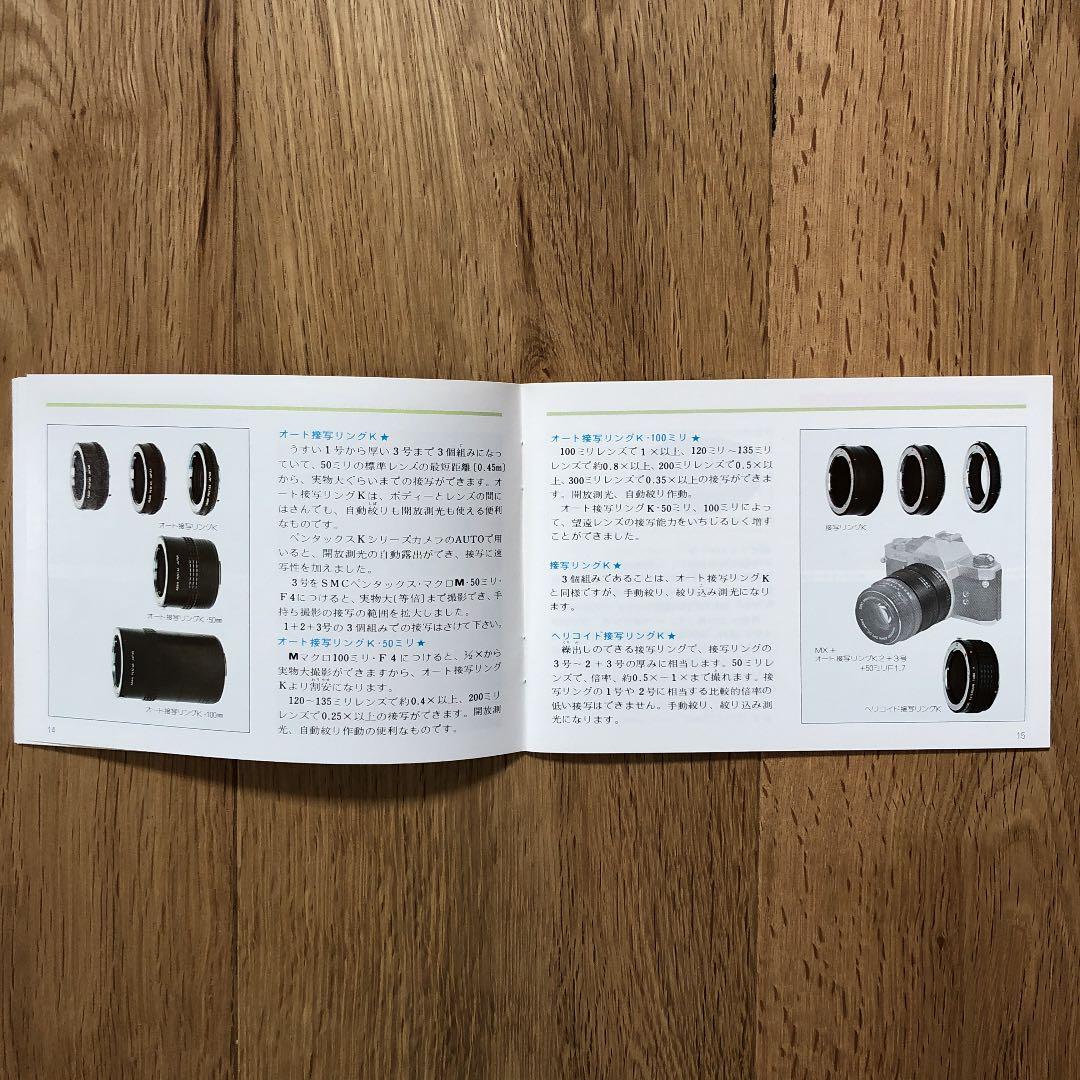 オート接写リングK
オート接写リングK・50mm
オート接写リングK・100mm
14
オート接写リングK★
うすい1号から厚い3号まで3個組みになっ
ていて、50ミリの標準レンズの最短距離[0.45m]
から、実物大ぐらいまでの接写ができます。オ
ート接写リングKは、ボディーとレンズの間に
はさんでも、自動絞りも開放測光も使える便利
なものです。
ペンタックスKシリーズカメラのAUTOで用
いると、開放測光の自動露出ができ、接写に速
写性を加えました。
3号をSMCペンタックス・マクロM・50ミリ・
F4につけると、実物大[等倍]まで撮影でき、手
持ち撮影の接写の範囲を拡大しました。
1+2+3号の3個組みでの接写はさけて下さい。
オート接写リングK・50ミリ★
Mマクロ100ミリ・F4につけると、½×から
実物大撮影ができますから、オート接写リング
Kより割安になります。
120~135ミリレンズで約0.4×以上、200ミリ
レンズで0.25×以上の接写ができます。開放測
光、自動絞り作動の便利なものです。
オート接写リングK・100ミリ★
100ミリレンズで1×以上、120ミリ~135ミリ
レンズで約0.8×以上、200ミリレンズで0.5×以
上、300ミリレンズで0.35×以上の接写ができま
す。開放測光、自動絞り作動。
オート接写リングK・50ミリ、100ミリによっ
て、望遠レンズの接写能力をいちじるしく増す
ことができました。
接写リングK★
3個組みであることは、オート接写リングK
と同様ですが、手動絞り、絞り込み測光になり
ます。
ヘリコイド接写リングK★
繰出しのできる接写リングで、接写リングの
3号~2+3号の厚みに相当します。50ミリレ
ンズで、倍率、約0.5×~1×まで撮れます。接
写リングの1号や2号に相当する比較的倍率の
低い接写はできません。手動絞り、絞り込み測
光になります。
接写リングK
MX+
オート接写リングK2+3号
+50ミリF1.7
ヘリコイド接写リングK
15